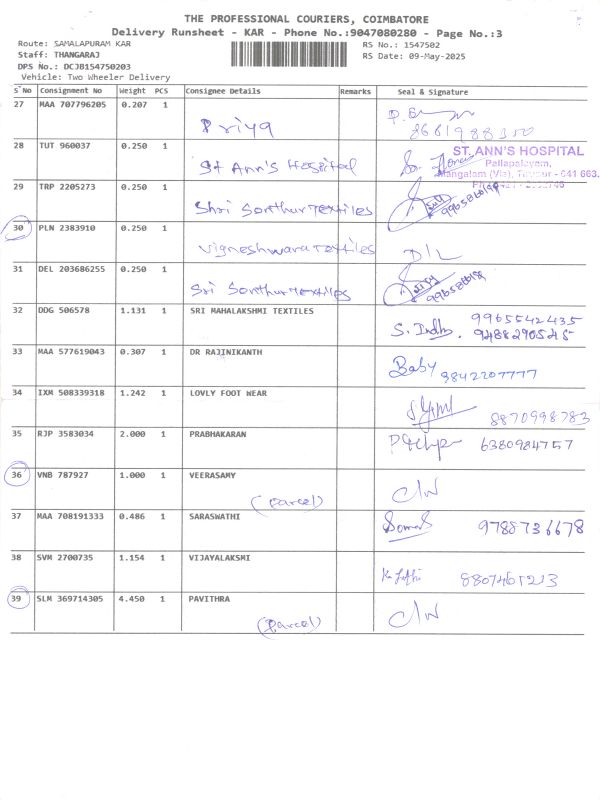 THE PROFESSIONAL COURIERS, COIMBATORE
Delivery Runsheet - KAR - Phone No.:9047080280 - Page No.:3
Route: SAMALAPURAM KAR RS No.: 1547502
Staff: THANGARAJ RS Date: 09-May-2025
DPS No.: DCJ8154750203
Vehicle: Two Wheeler Delivery
S No Consignment No Weight PCS Consignee Details Remarks Seal & Signature
27 MAA 707796205 0.207 1 Priya
28 TUT 960037 0.250 1 St Ann's Hospital
ST. ANN'S HOSPITAL
Pallapalayam,
Mangalam (Via), Tirupur - 641 663.
29 TRP 2205273 0.250 1 Shri Sonthur Textiles
30 PLN 2383910 0.250 1 Vigneshwara Textiles D/L
31 DEL 203686255 0.250 1 Sri Sonthur Textiles
32 DDG 506578 1.131 1 SRI MAHALAKSHMI TEXTILES 9965542435
33 MAA 577619043 0.307 1 DR RAJINIKANTH Baby 9842207777
34 IXM 508339318 1.242 1 LOVLY FOOT WEAR 8870998783
35 RJP 3583034 2.000 1 PRABHAKARAN 6380984757
36 VNB 787927 1.000 1 VEERASAMY (Parcel) C/N
37 MAA 708191333 0.486 1 SARASWATHI 9788736678
38 SVM 2700735 1.154 1 VIJAYALAKSMI
39 SLM 369714305 4.450 1 PAVITHRA (Parcel) C/N